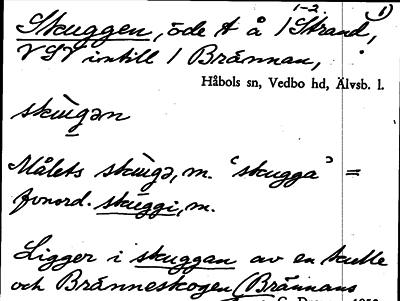 1-2. 1)
Skuggen, öde t å 1 Strand,
VSV intill 1 Brännan,
Håbols sn, Vedbo hd, Älvsb. l.
skùgən
Målets skùgə, m. "skugga" =
fvnord. skuggi, m.
Ligger i skuggan av en kulle
och Bränneskogen (Brännans